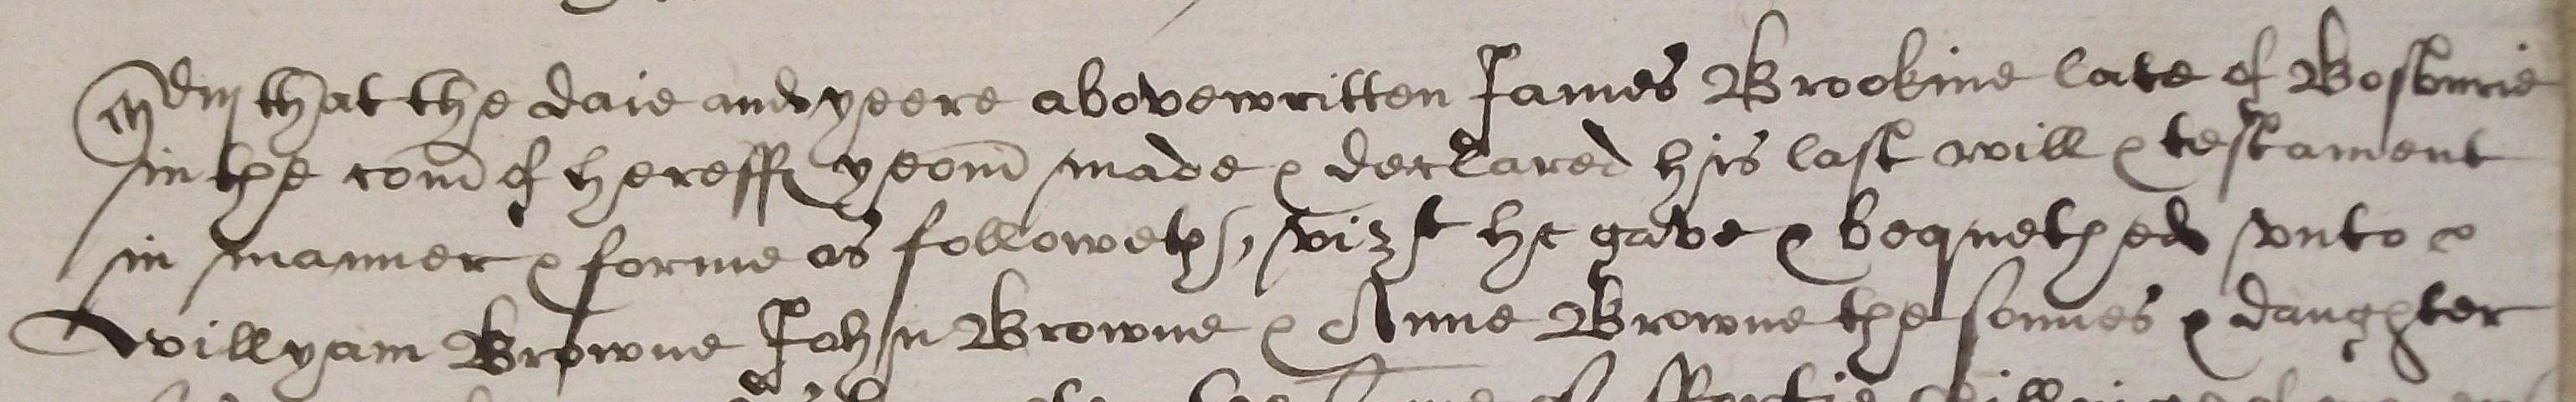 Mdm that the daie and yeere abovewritten James Brookine late of Bosburie
in the com of hereff yeom made & declared his last will & testament
in manner & forme as followeth, vizt he gave & bequethed vnto
Willyam Browne John Browne & Anne Browne the sonnes & daughter